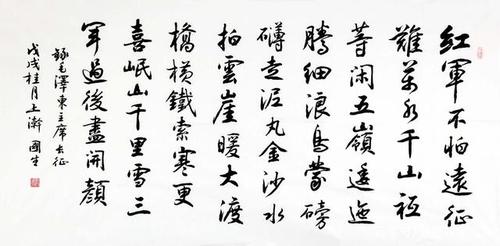 紅軍不怕遠征
難萬水千山祗
等闲五嶺逶迤
騰细浪烏蒙磅
礴走泥丸金沙水
拍雲崖暖大渡
橋横鐵索寒更
喜岷山千里雪三
軍過後盡開顏
録毛澤東主席長征
戊戌桂月上瀚 國生